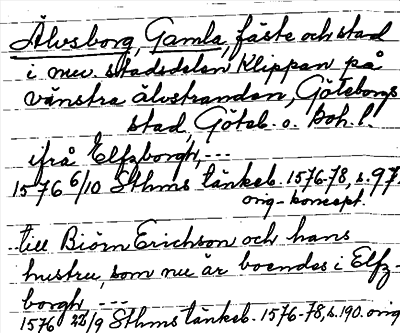 Älvsborg, Gamla, fäste och stad
i nuv. stadsdelen Klippan på
vänstra älvstranden, Göteborgs
stad, Göteb. o. Boh. l.
ifrå Elfzborgh, ---
1576 6/10 Sthms tänkeb. 1576-78, s. 97.
orig-koncept.
till Biörn Erichson och hans
hustru, som nu är boendes i Elfz-
borgh ---
1576 22/9 Sthms tänkeb. 1576-78, s. 190. orig